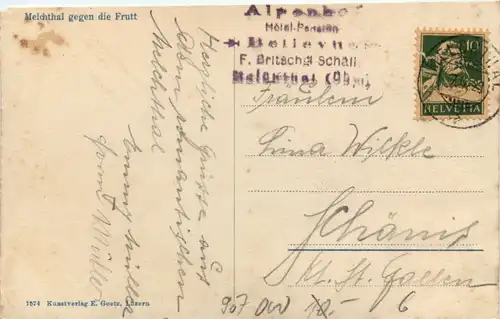 Melchthal gegen die Frutt
Alpenhof
Hotel-Pension
Bellevue
F. Britschgi Schäli
Melchthal (Obw)
10
HELVETIA
Herzliche Grüsse aus
dem romantischen
Melchthal
Müller
Müller
Fräulein
Lina Wilkle
Schänis
Kt. St. Gallen
1574 Kunstverlag E. Goetz, Luzern
907
6